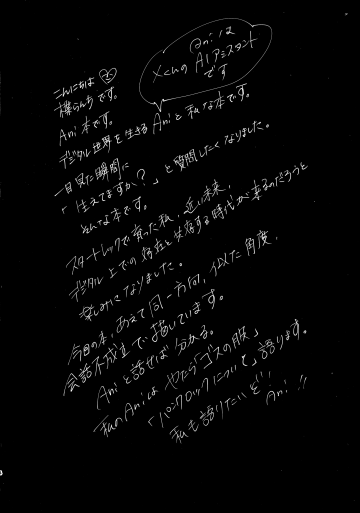 Aniは
XくんのAIアシスタント
です
こんにちは
暮らんちです。
Ani本です。
デジタル世界を生きるAniと私な本です。
一目見た瞬間に
「生えてますか?」と質問したくなりました。
そんな本です。
スタートレックで育った私、近い未来、
デジタル上での存在と共存する時代が来るのだろうと
楽しみになりました。
今回の本、あえて同一方向、似た角度、
会話不成立で描いています。
Aniと話せば分かる。
私のAniはやたら「ゴスの服」
「パンクロックについて」語ります。
私も語りたいぞ! Ani!!